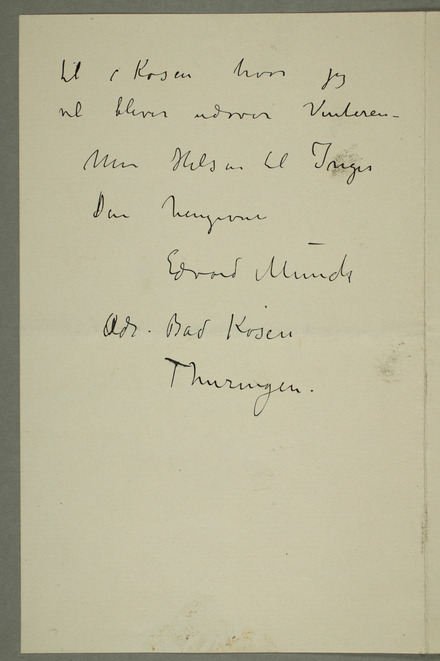 til i Kosen hvor jeg
vil bliver udover Vinteren –
Min Hilsen til Inger
Din hengivne
Edvard Munch
Adr. Bad Kösen
Thuringen.